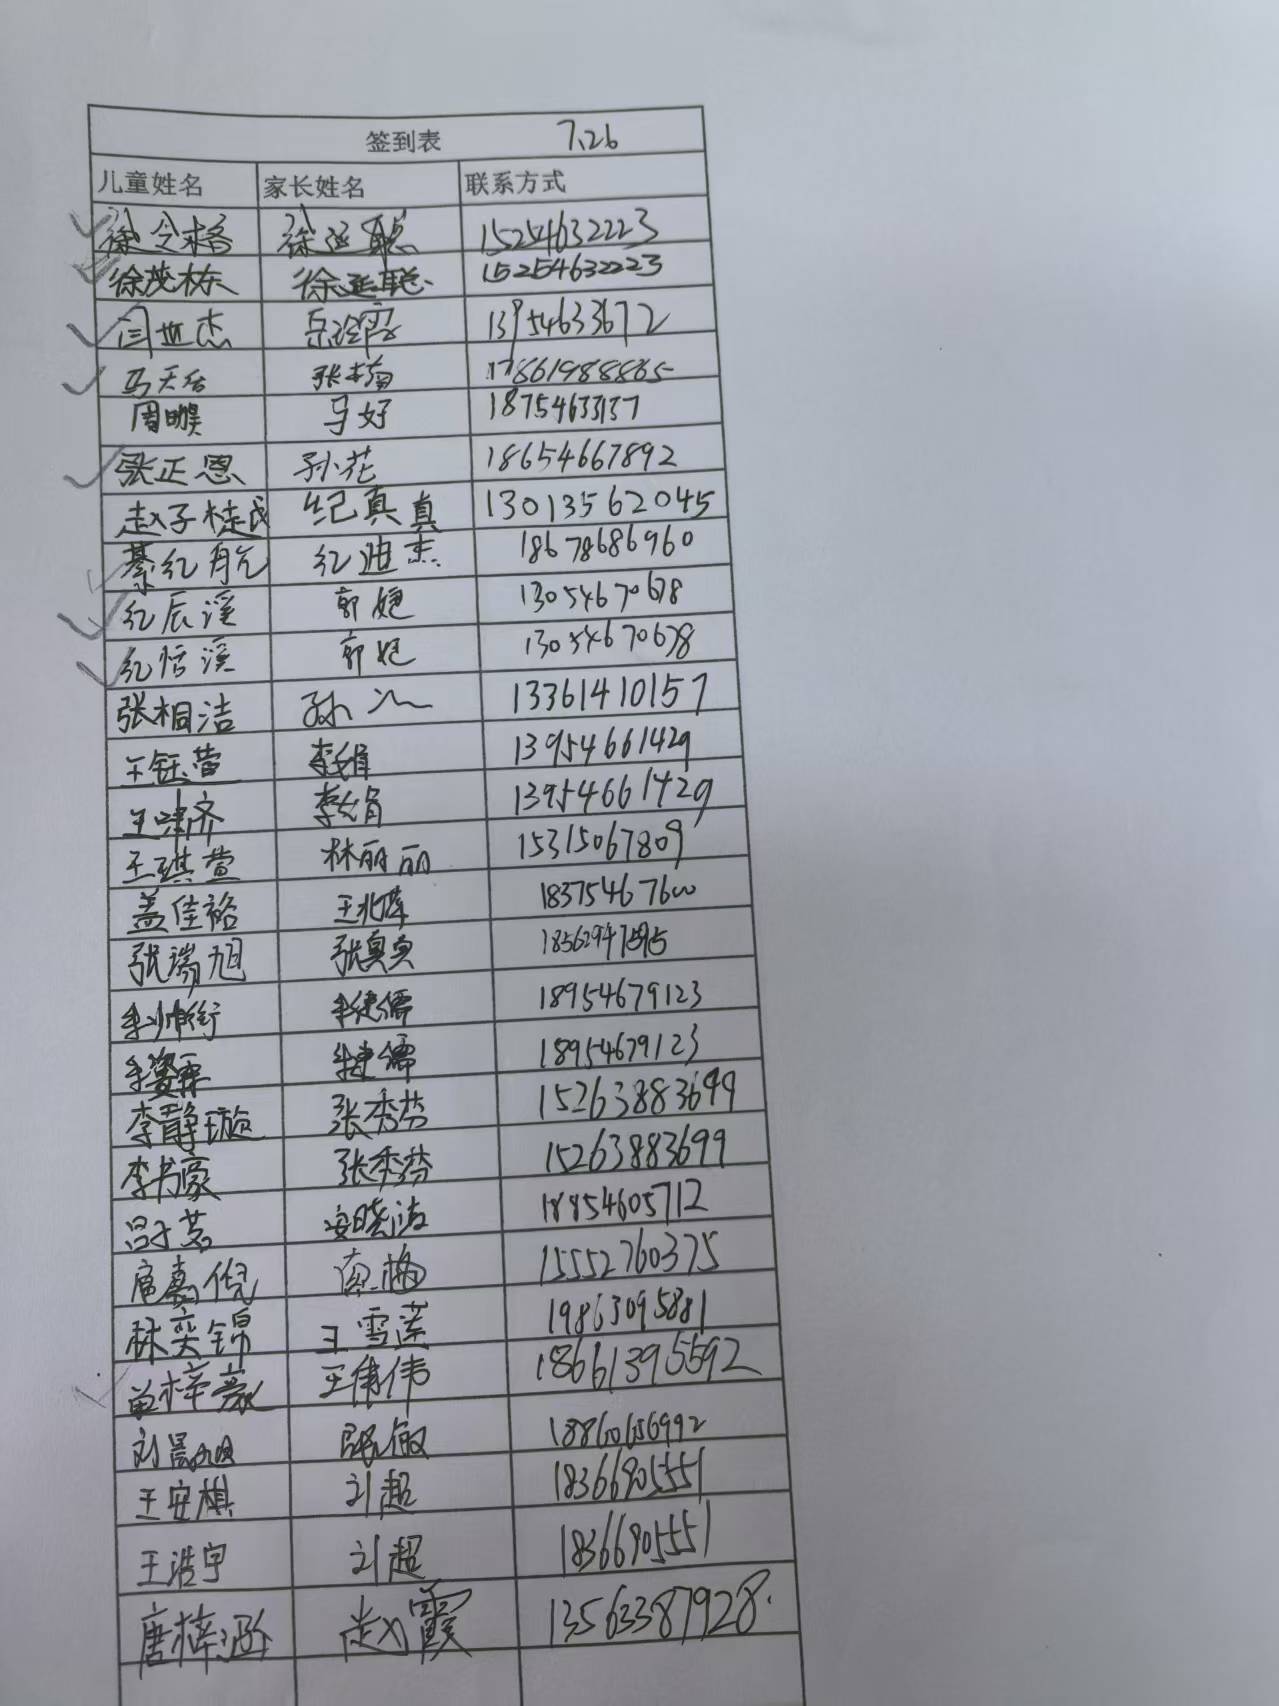 签到表 7.26
儿童姓名 家长姓名 联系方式
徐令格 徐延聪 15254632223
徐茂栋 徐延聪 15254632223
闫世杰 岳玲霞 13954633672
马天佑 张楠 17861988865
周 马好 18754633137
张正恩 孙花 18654667892
赵子桂 纪真真 13013562045
綦纪航 纪迪杰 18678686960
纪辰溪 郭媳 13054670678
纪恬溪 郭媳 13054670678
张桐洁 孙 13361410157
王钰萱 李娟 13954661429
王 李娟 13954661429
王琪萱 林丽丽 15315067809
盖佳裕 王兆萍 18375467600
张瑞旭 张真真 18562947595
李帅衔 李建儒 18954679123
李霖 李建儒 18954679123
李静璇 张秀芬 15263883699
李书豪 张秀芬 15263883699
吕子茗 安晓洁 18854605712
扈嘉倪 南梅 15552760375
林奕锦 王雪莲 19863095881
单梓豪 王伟伟 18661395592
刘晨旭 张敏 18860656992
王安棋 刘超 18366905551
王浩宇 刘超 18366905551
唐梓涵 赵霞 13563387928